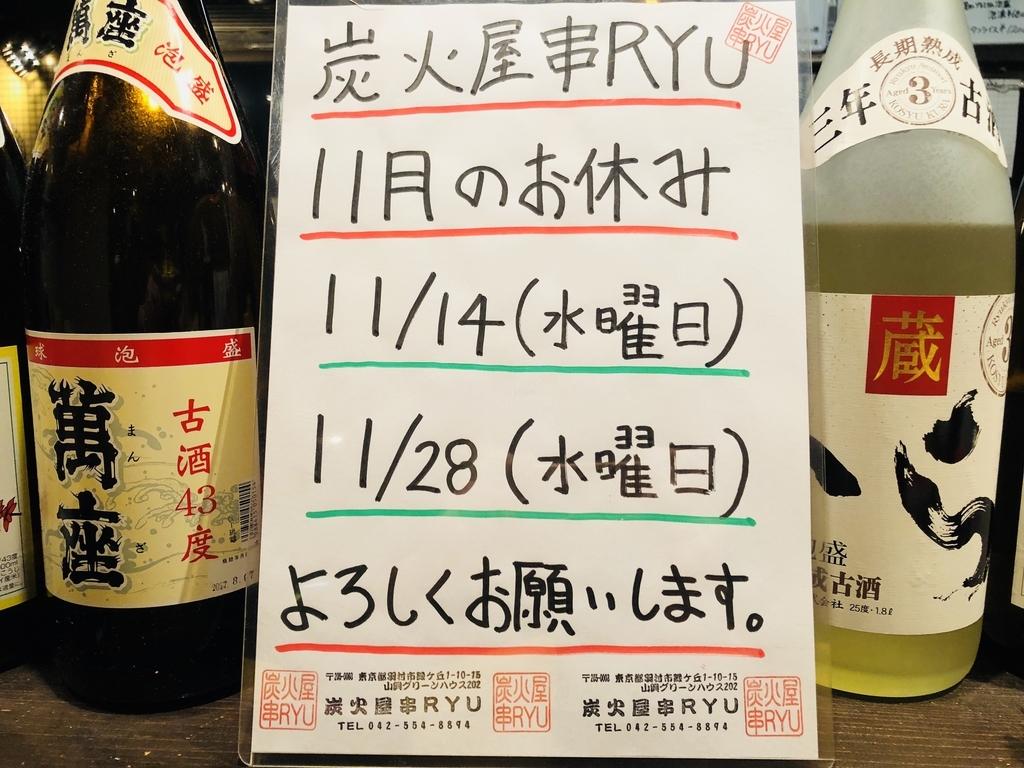 炭火屋串RYU
炭火屋
串RYU
11月のお休み
11/14(水曜日)
11/28(水曜日)
よろしくお願いします。
東京都羽村市緑ケ丘1-10-15
グリーンハウス202
炭火屋串RYU
TEL 042-554-8894
東京都羽村市緑ケ丘1-10-15
グリーンハウス202
炭火屋串RYU
TEL 042-554-8894
炭火屋
串RYU
炭火屋
串RYU
炭火屋
串RYU
萬座
泡盛
球泡盛
萬座
まんざ
古酒43度
2017.8.07
長期熟成
三年
Aged 3 Years
KOSYU KURA
古酒
蔵
Aged
盛
古酒
25度・1.8ℓ